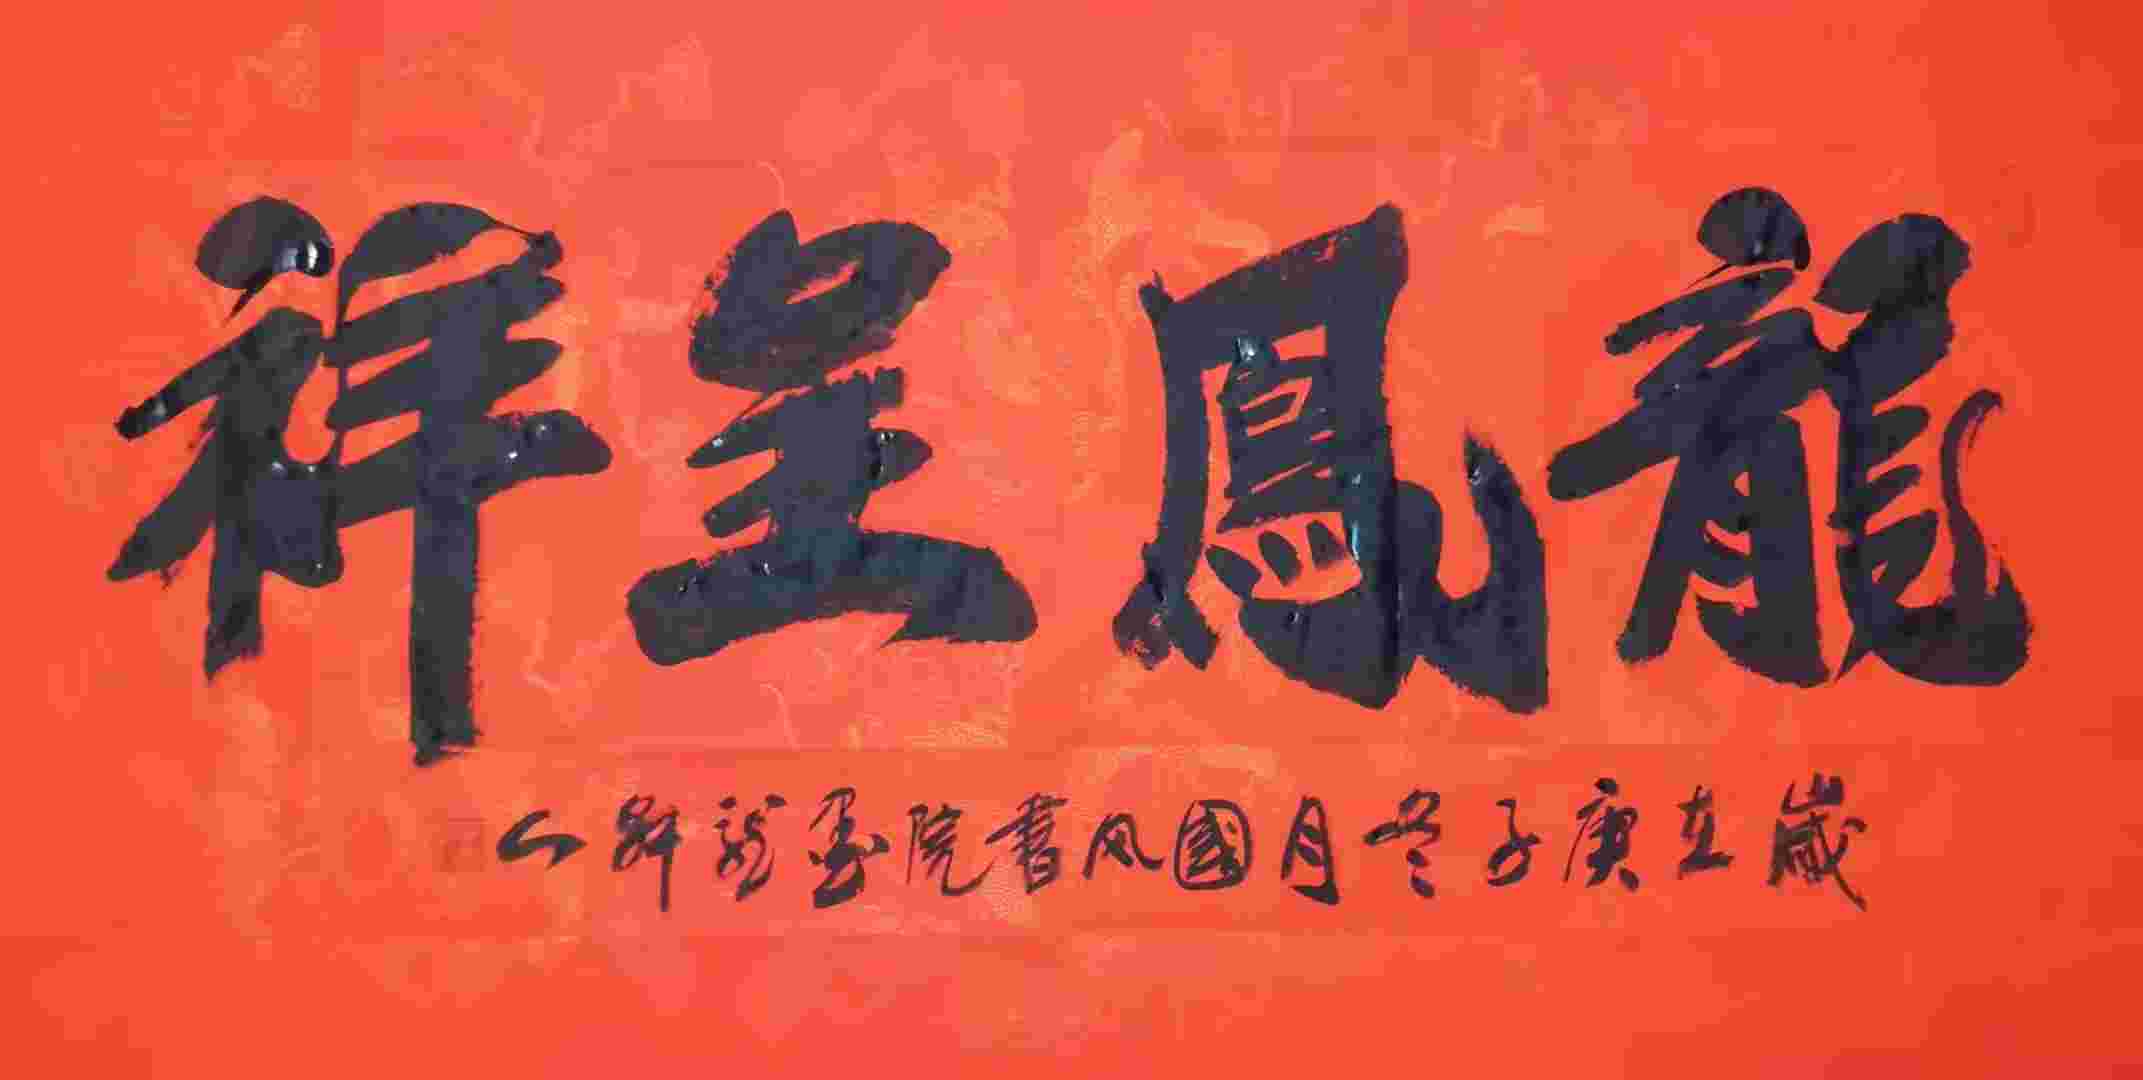 龍鳳呈祥
歲在庚子冬月國风書院墨龍軒